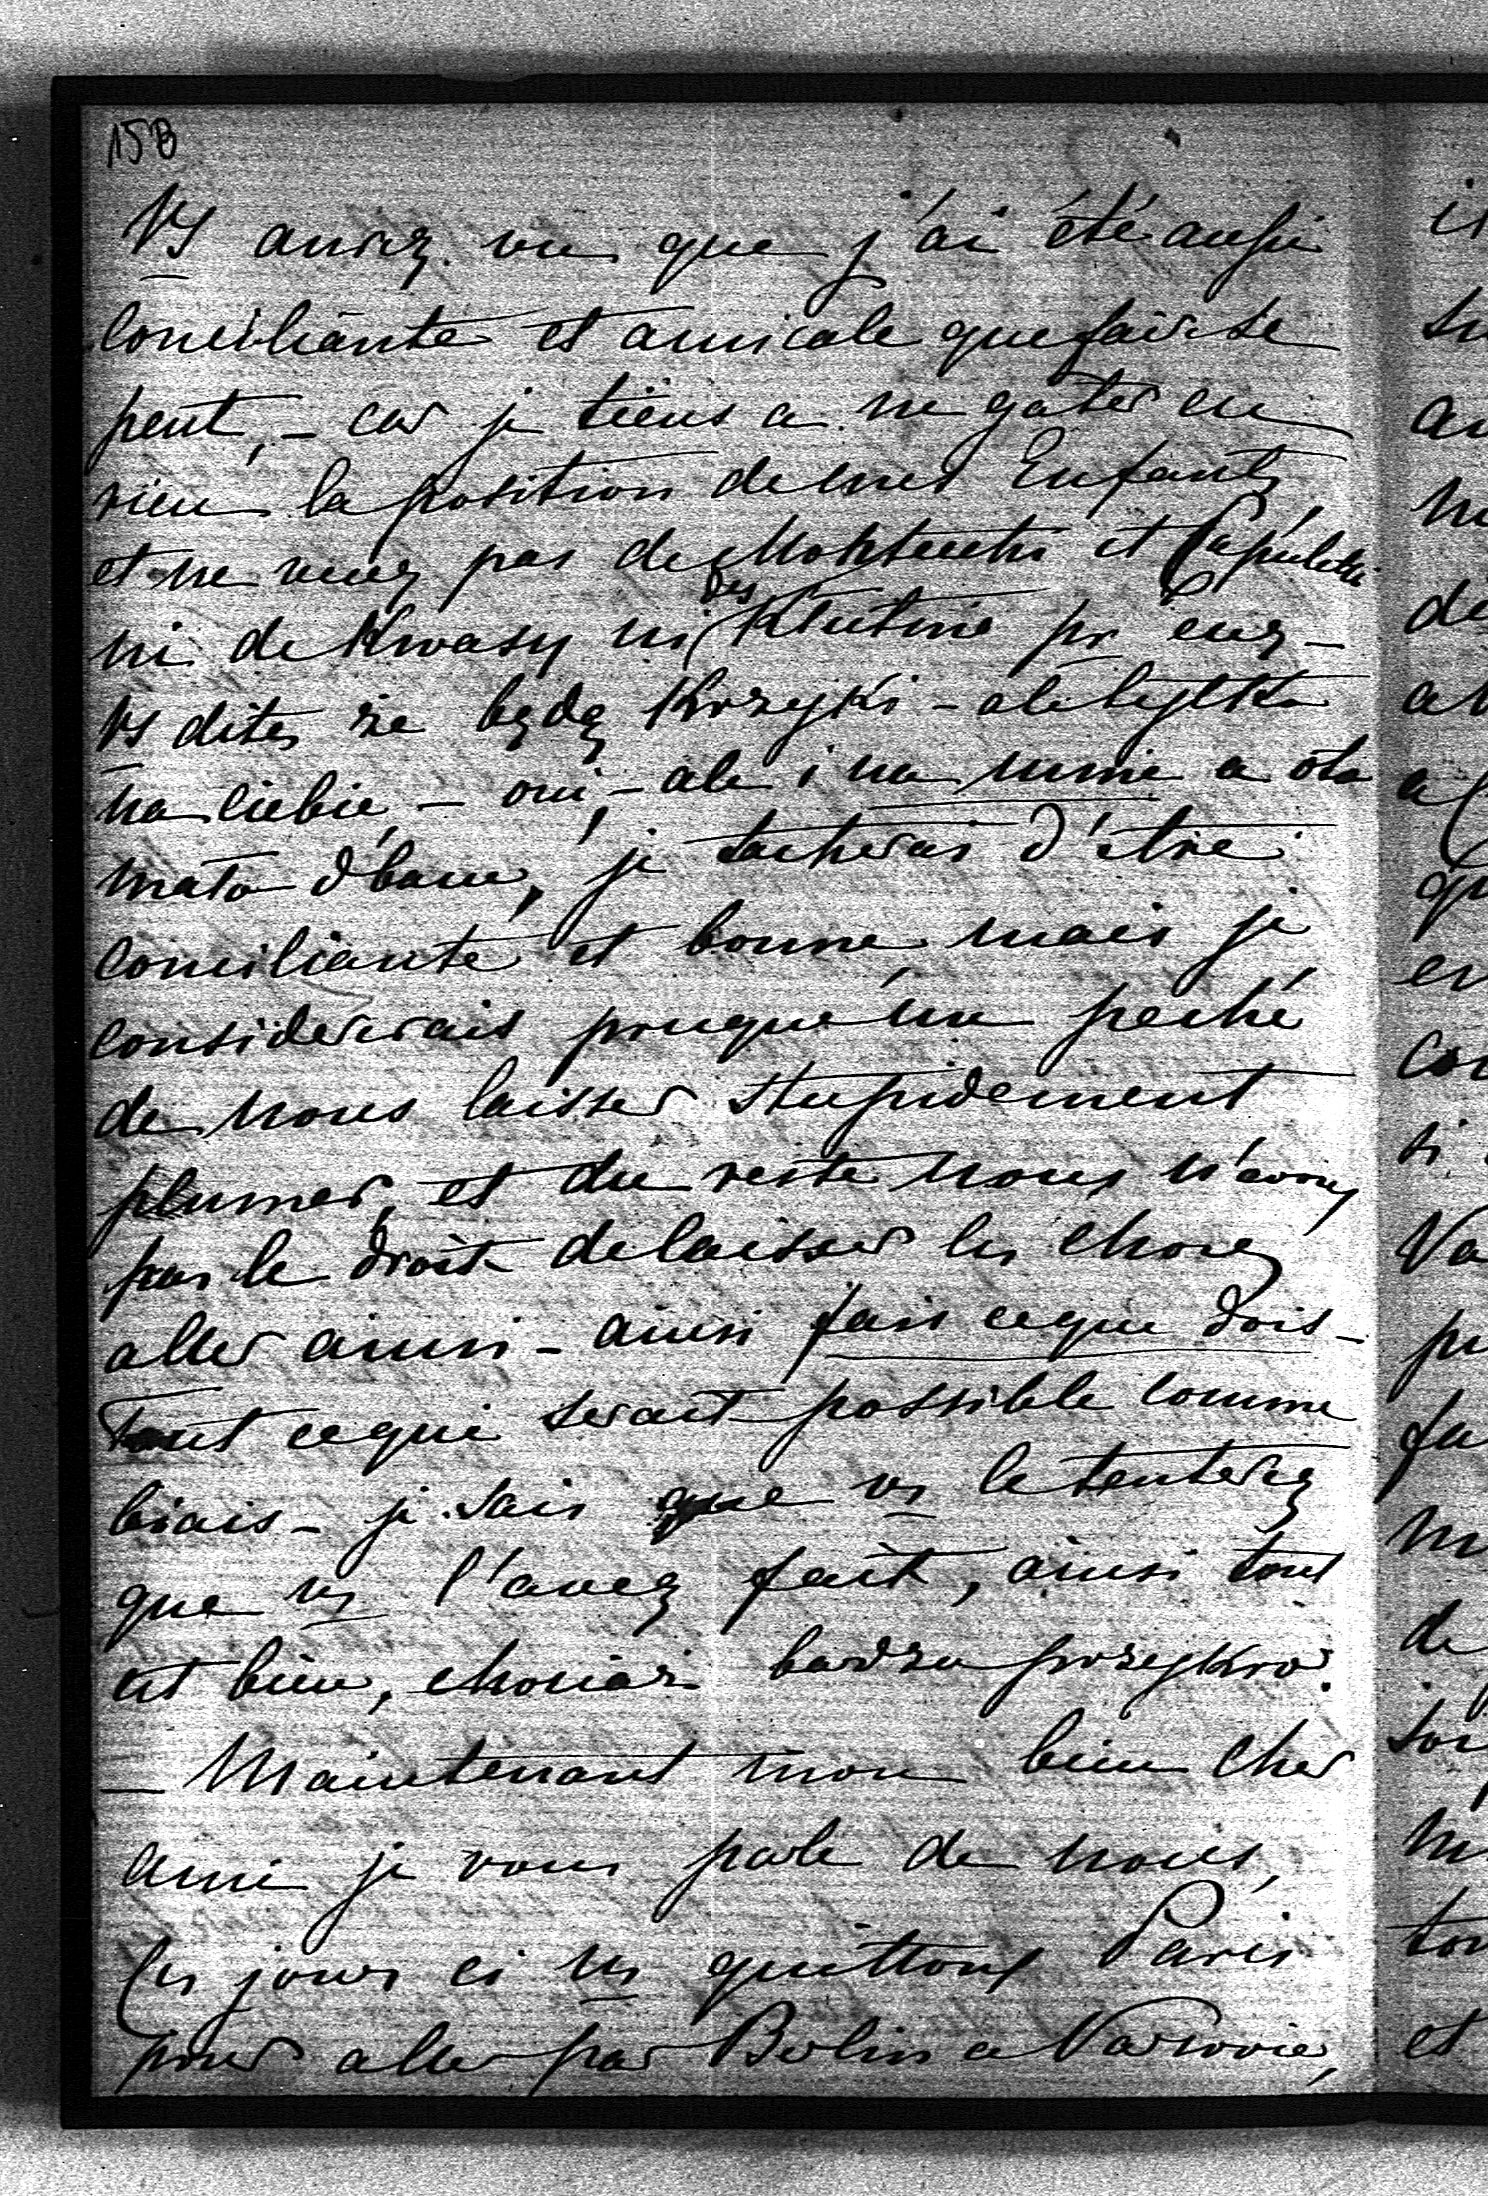 15B
Vs aurez vu que j'ai été aussi
conciliante et amicale que faire se
peut, - car je tiens a ne gâter en
rien la position de mes Enfants
et ne veux pas de Montecchi et Capuletti
ni de Kwasy ni des Kłutnie pr eux -
Vs dites że będą Krzyki - ale tylko
na ciebie - oui, - ale i na mnie a o to
mało dbam, je tacherai d'être
conciliante et bonne mais je
considererais presque un péché
de nous laisser stupidement
plumer, et du reste nous n'avons
pas le droit de laisser les choses
aller ainsi - ainsi fais ce que dois -
Tout ce qui serait possible comme
biais - je sais que vs le tenterez
que vs l'avez fait, ainsi tout
est bien, chociaż bardzo przykro.
- Maintenant mon bien cher
ami je vous parle de nous,
Ces jours ci ns quittons Paris
pour aller par Berlin a Varsovie,